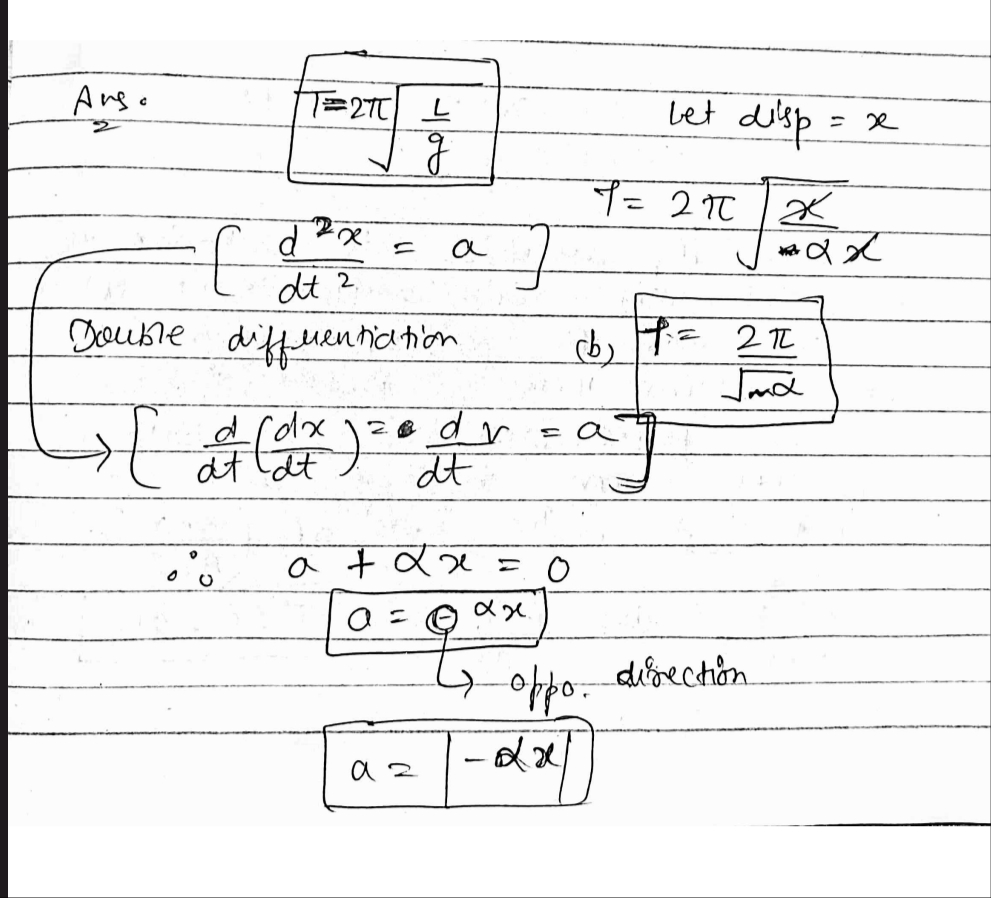 Ans.
2
T=2π√(L/g)
Let disp = x
T = 2π√(x/αx)
[ d²x/dt² = a ]
Double differentiation
(b) T = 2π/√α
[ d/dt (dx/dt) = dv/dt = a ]
∴ a + αx = 0
a = ⊖ αx
↳ oppo. direction
a = |-αx|